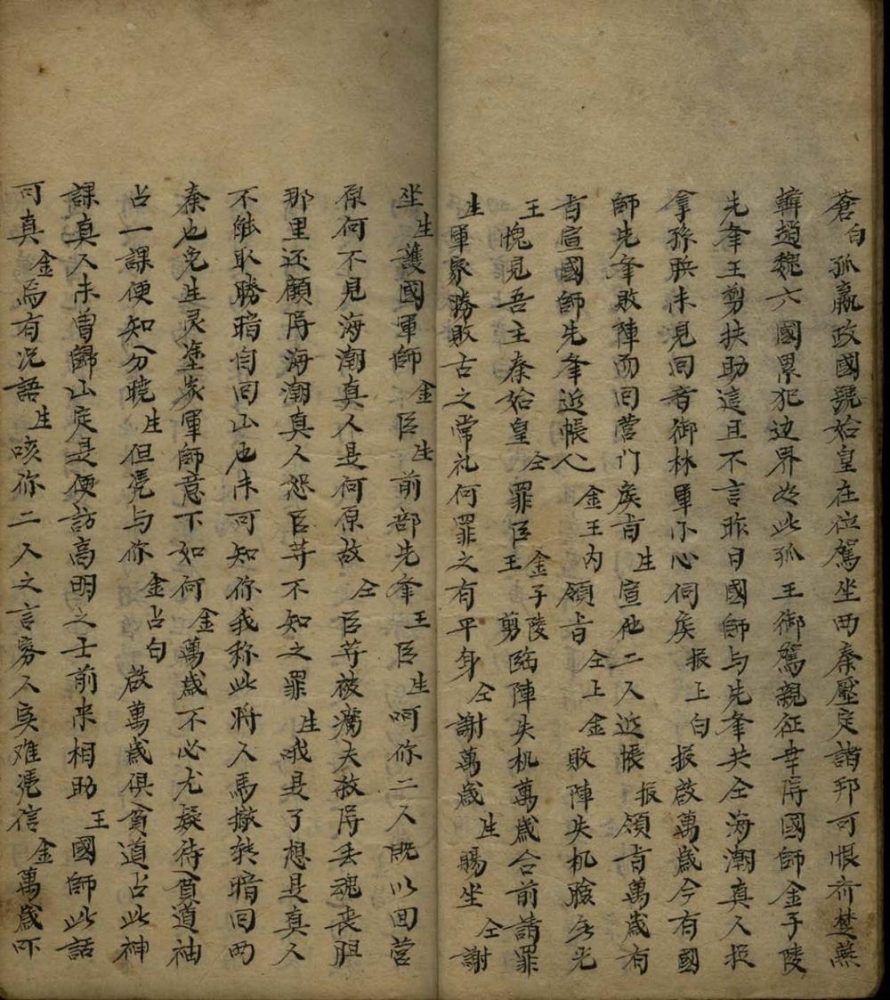 蒼白孤嬴政國號始皇在位駕坐西秦壓定諸邦可恨齐楚燕
韓趙魏六國累犯边界为此孤王御駕親征幸得國師金子陵
先夆王剪扶助這且不言昨日國師与先夆共仝海潮真人捉
拿孫臏未見回音御林軍小心伺矦 振上白 振啟萬歲今有國
師先夆敗陣而回营门矦旨 生 宣他二人近帳 振 領旨萬歲有
旨宣國師先夆近帳 金王內 領旨 仝上金 敗陣失机臉无光
王 愧見吾主秦始皇 仝 罪臣 金子陵 王剪 臨陣失机萬歲台前請罪
生 軍家勝敗古之常礼何罪之有平身 仝 謝萬歲 生 賜坐 仝 謝
坐 生 護國軍師 金 臣 生 前部先夆 王 臣 生 呵你二人既以回营
原何不見海潮真人是何原故 仝 臣等被 夫殺得丢魂丧胆
那里还顧得海潮真人恕臣等不知之罪 生 哦是了想是真人
不能取勝暗自回山也未可知你我称此將人馬撤轉暗回西
秦也免生灵塗炭軍師意下如何 金 萬歲不必尤疑待貧道袖
占一課便知分曉 生 但凭与你 金占白 啟萬歲俱貧道占此神
課真人未曾歸山定是便訪高明之士前來相助 王 國師此話
可真 金 焉有况語 生 咳你二人之言寡人寔难凭信 金 萬歲吓